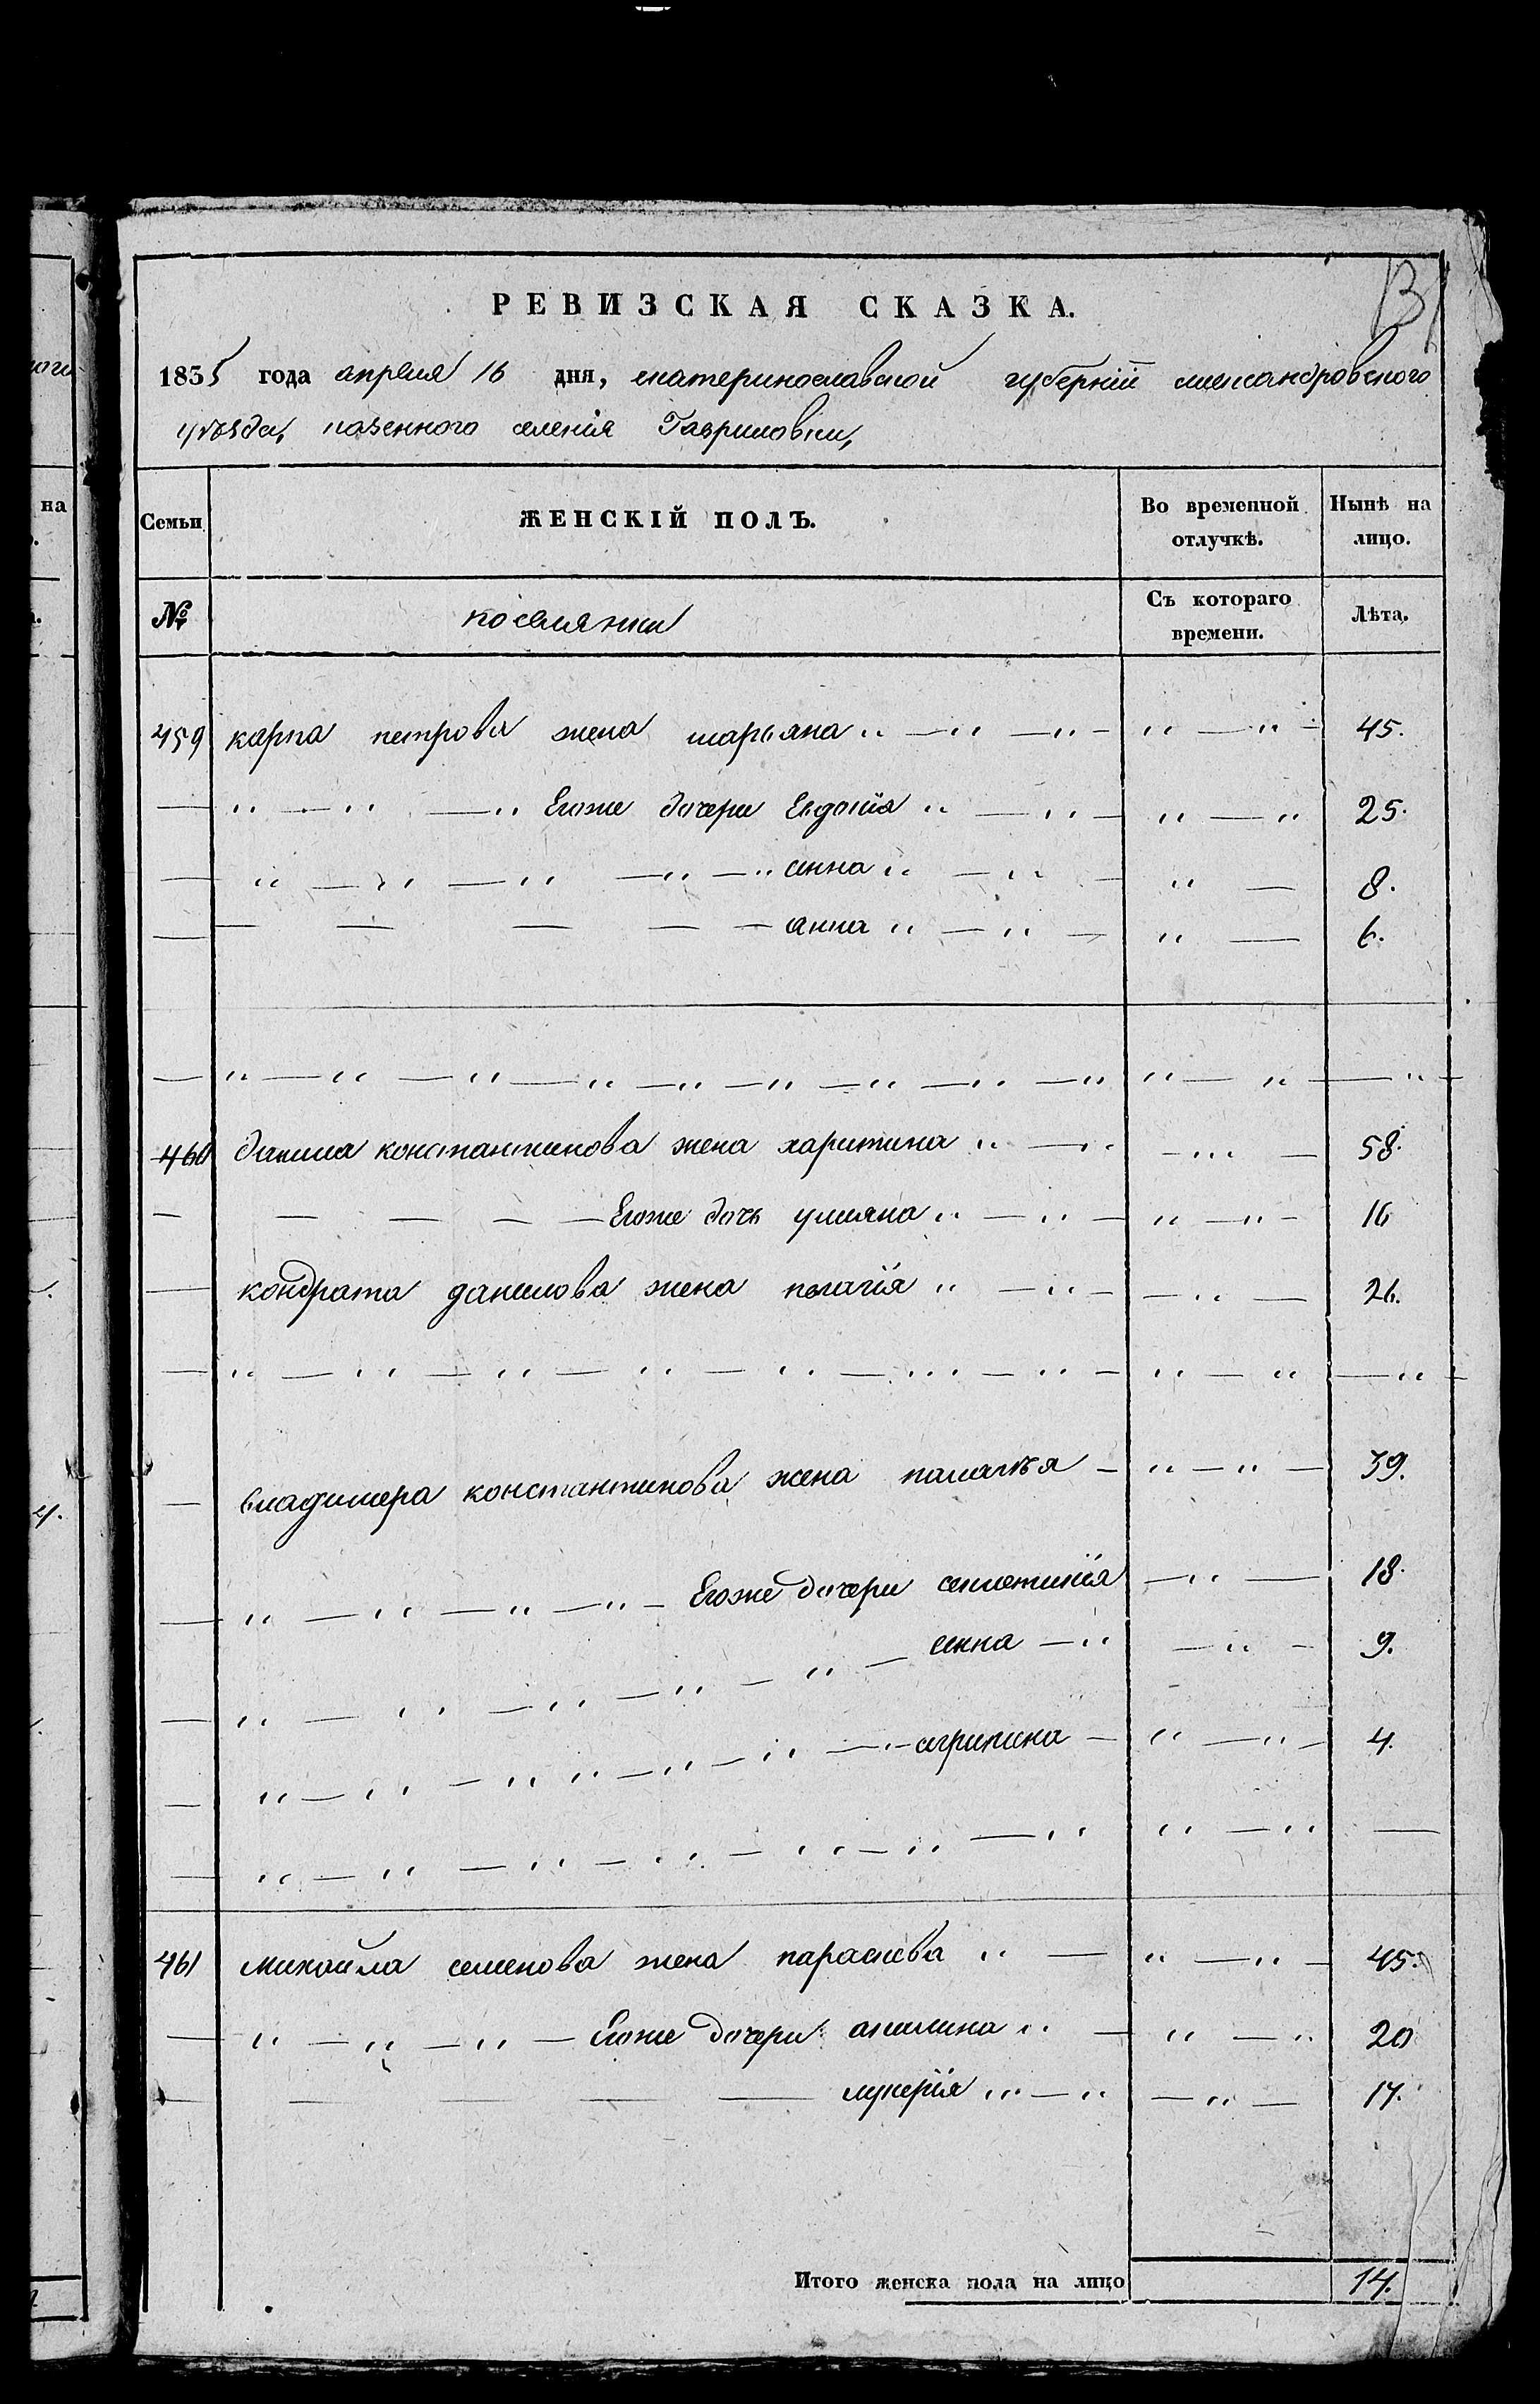 РЕВИЗСКАЯ СКАЗКА.
1835 года апреля 16 дня, екатеринославской губерніи александровского
уѣзда, казенного селенія Гавриловки,
Семьи
ЖЕНСКІЙ ПОЛЪ.
Во временной отлучкѣ.
Нынѣ на лицо.
№
поселянки
Съ котораго времени.
Лѣта.
459 карпа петрова жена марьяна 45.
Егоже дочери Евдокія 25.
анна 8.
анна 6.
460 данила константинова жена харитина 58.
Егоже дочь ульяна 16
кондрата данилова жена пелагія 26.
владимера константинова жена 39.
Егоже дочери 18.
анна 9.
агрипина 4.
461 михайла семенова жена параскева 45.
Егоже дочери акилина 20
лукерія 17.
Итого женска пола на лицо 14.